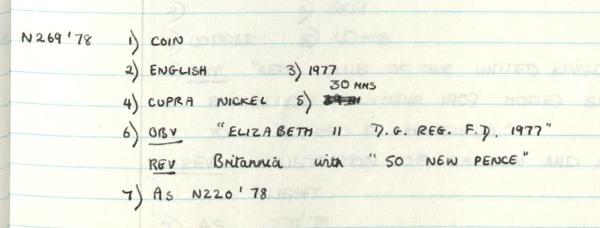 N269 '78 1) COIN
2) ENGLISH 3) 1977
30 MMS
4) CUPRA NICKEL 5)
6) OBV "ELIZABETH II D.G. REG. F.D. 1977"
REV Britannia with "50 NEW PENCE"
7) AS N220 '78